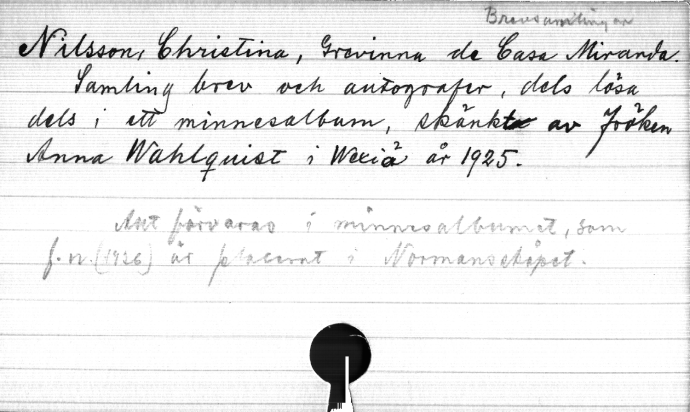 Brevsamlingar
Nilsson, Christina, Grevinna de Casa Miranda.
Samling brev och autografer, dels lösa
dels i ett minnesalbum, skänkta av fröken
Anna Wahlquist i Wexiö år 1925.
Allt förvaras i minnesalbumet, som
f. n. (1926) är placerat i Normanskåpet.